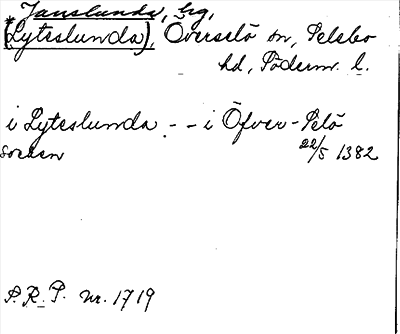 Janslunda, hg,
(Lytslunda), Överselö sn, Selebo
hd, Söderm. l.
i Lytslunda - - i Öfver-Selö
socken 22/5 1382
S. R. P. nr. 1719